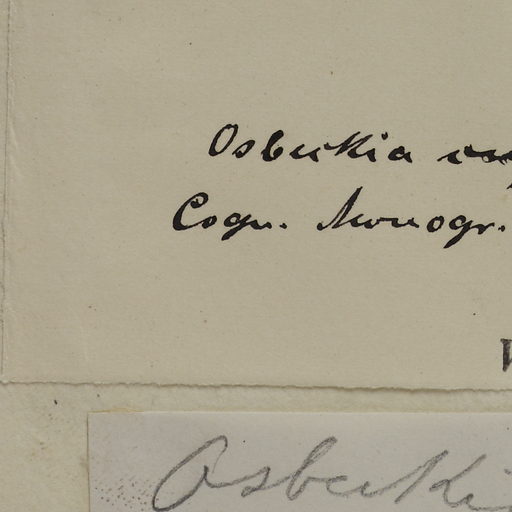 Osbeckia
Cogn. Monogr.
Osbecki